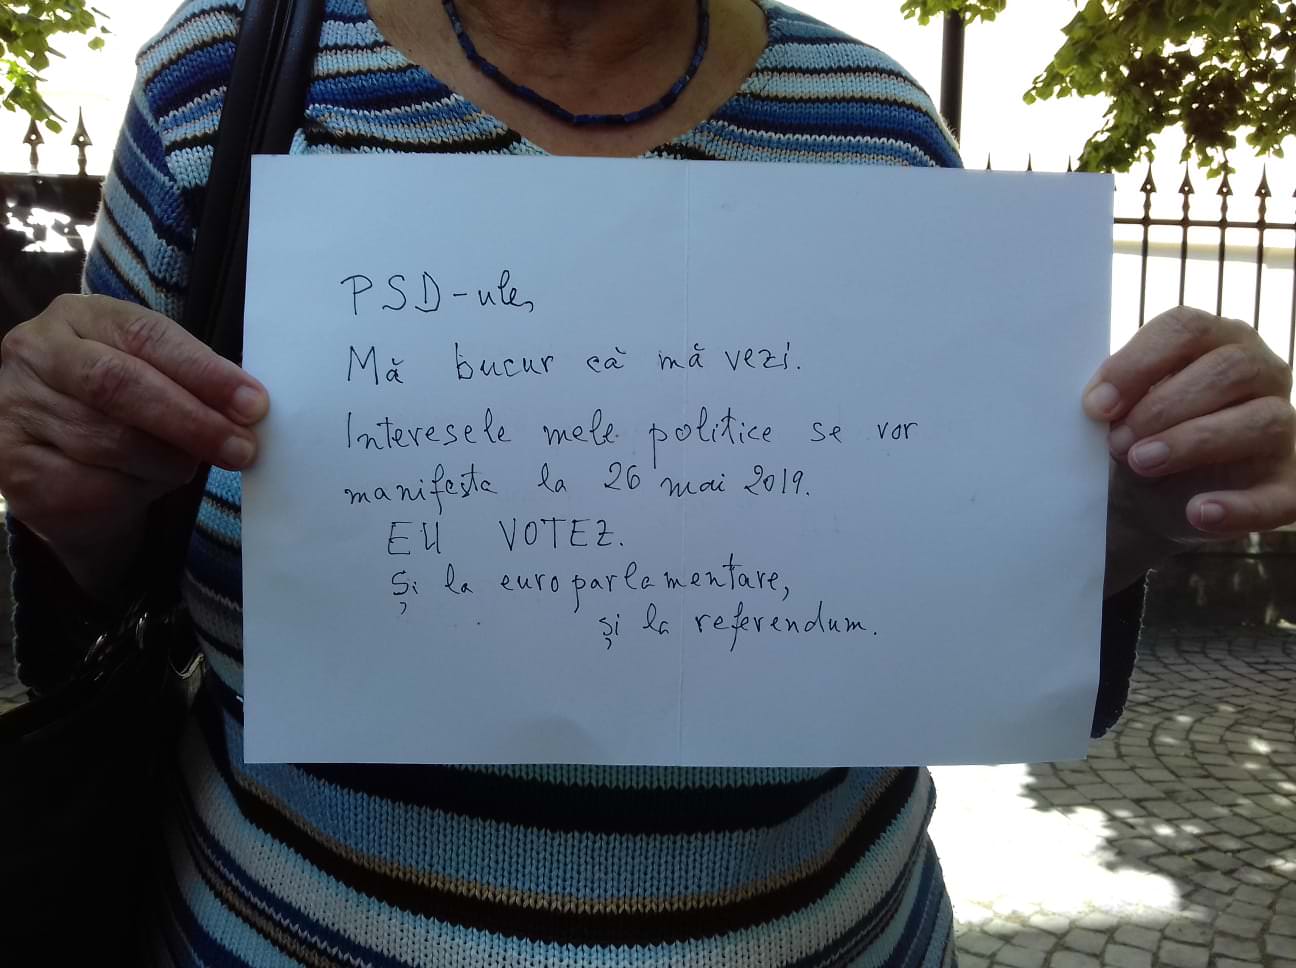 PSD-ule,
Mă bucur că mă vezi.
Interesele mele politice se vor
manifesta la 26 mai 2019.
EU VOTEZ.
Și la europarlamentare,
și la referendum.